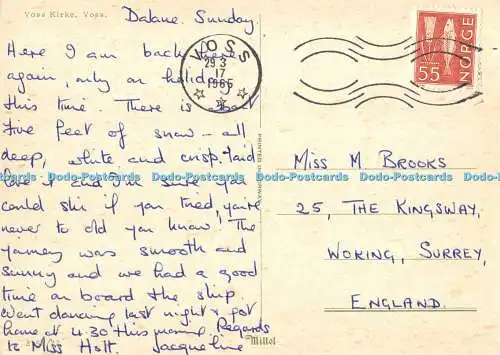 Voss Kirke, Voss.
Dalane. Sunday
Here I am back here
again, only on holiday
this time. There is about
five feet of snow - all
deep, white and crisp.
love it and I'm sure you
could ski if you tried, you're
never to old you know! The
journey was smooth and
sunny and we had a good
time on board the ship.
Went dancing last night & got
home at 4.30 this morning. Regards
to Miss Holt. Jacqueline
PRINTED IN NORWAY
Mittet
VOSS
29.3
17
1965
NORGE
55
MISS M BROOKS
25, THE KINGSWAY,
WOKING, SURREY,
ENGLAND.
Dodo-Postcards Dodo-Postcards Dodo-Postcards Dodo-Postcards Dodo-Postcards Dodo-Postcards